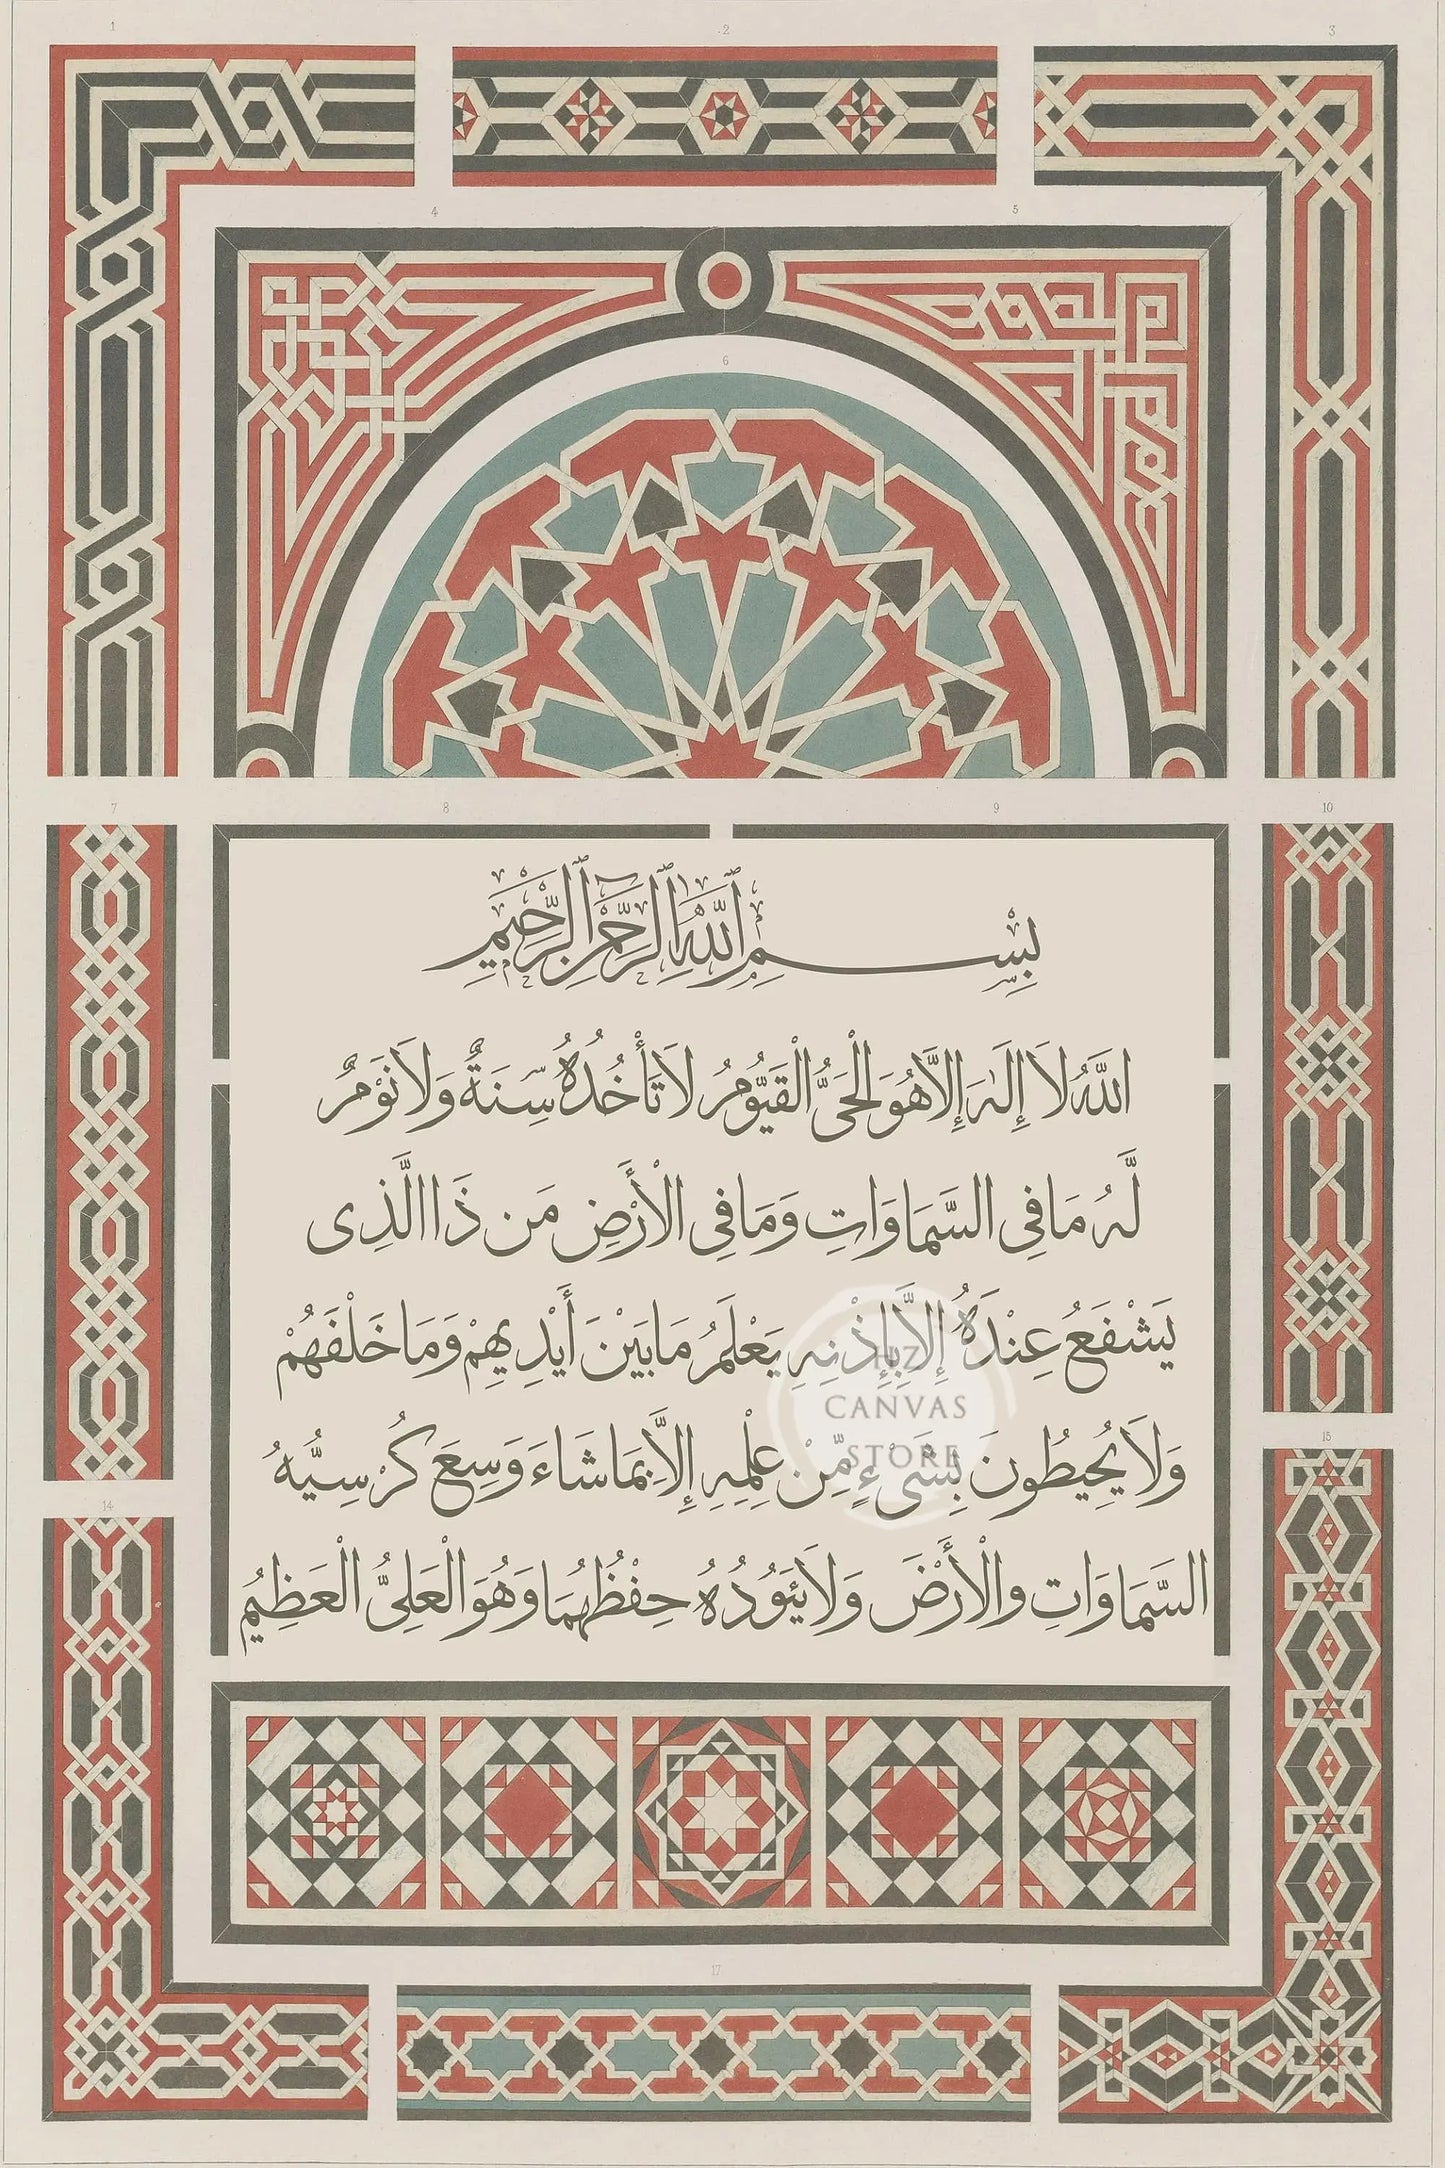 1
2
3
4
5
6
7
8
9
10
بِسْمِ اللَّهِ الرَّحْمٰنِ الرَّحِيمِ
اللَّهُ لَا إِلَٰهَ إِلَّا هُوَ الْحَيُّ الْقَيُّومُ لَا تَأْخُذُهُ سِنَةٌ وَلَا نَوْمٌ
لَّهُ مَا فِي السَّمَاوَاتِ وَمَا فِي الْأَرْضِ مَن ذَا الَّذِى
يَشْفَعُ عِنْدَهُ إِلَّا بِإِذْنِهِ يَعْلَمُ مَا بَيْنَ أَيْدِيهِمْ وَمَا خَلْفَهُمْ
HZ
CANVAS
STORE
وَلَا يُحِيطُونَ بِشَىْءٍ مِّنْ عِلْمِهِ إِلَّا بِمَا شَاءَ وَسِعَ كُرْسِيُّهُ
15
14
السَّمَاوَاتِ والْأَرْضَ وَلَا يَئُودُهُ حِفْظُهُمَا وَهُوَ الْعَلِىُّ الْعَظِيمُ
17